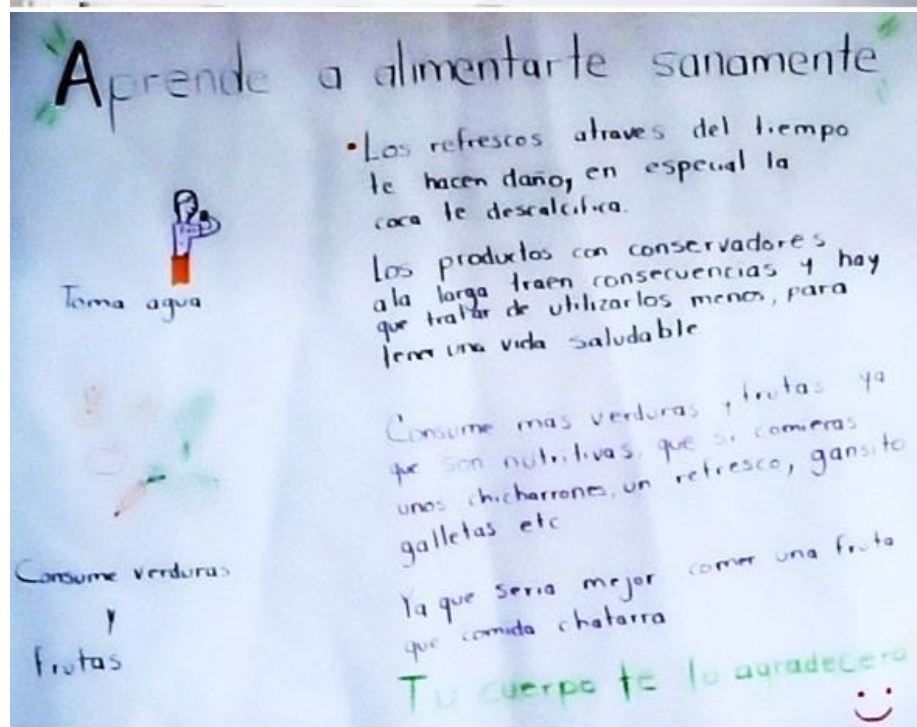 Aprende a alimentarte sanamente
• Los refrescos atraves del tiempo
te hacen daño, en especial la
coca te descalcifica.
Los productos con conservadores
ala larga traen consecuencias y hay
que tratar de utilizarlos menos, para
tener una vida saludable
Consume mas verduras y frutas ya
que son nutritivas, que si comieras
unos chicharrones, un refresco, gansito
galletas etc
Ya que seria mejor comer una fruta
que comida chatarra
Tu cuerpo te lo agradecera
Toma agua
Consume verduras
y
frutas